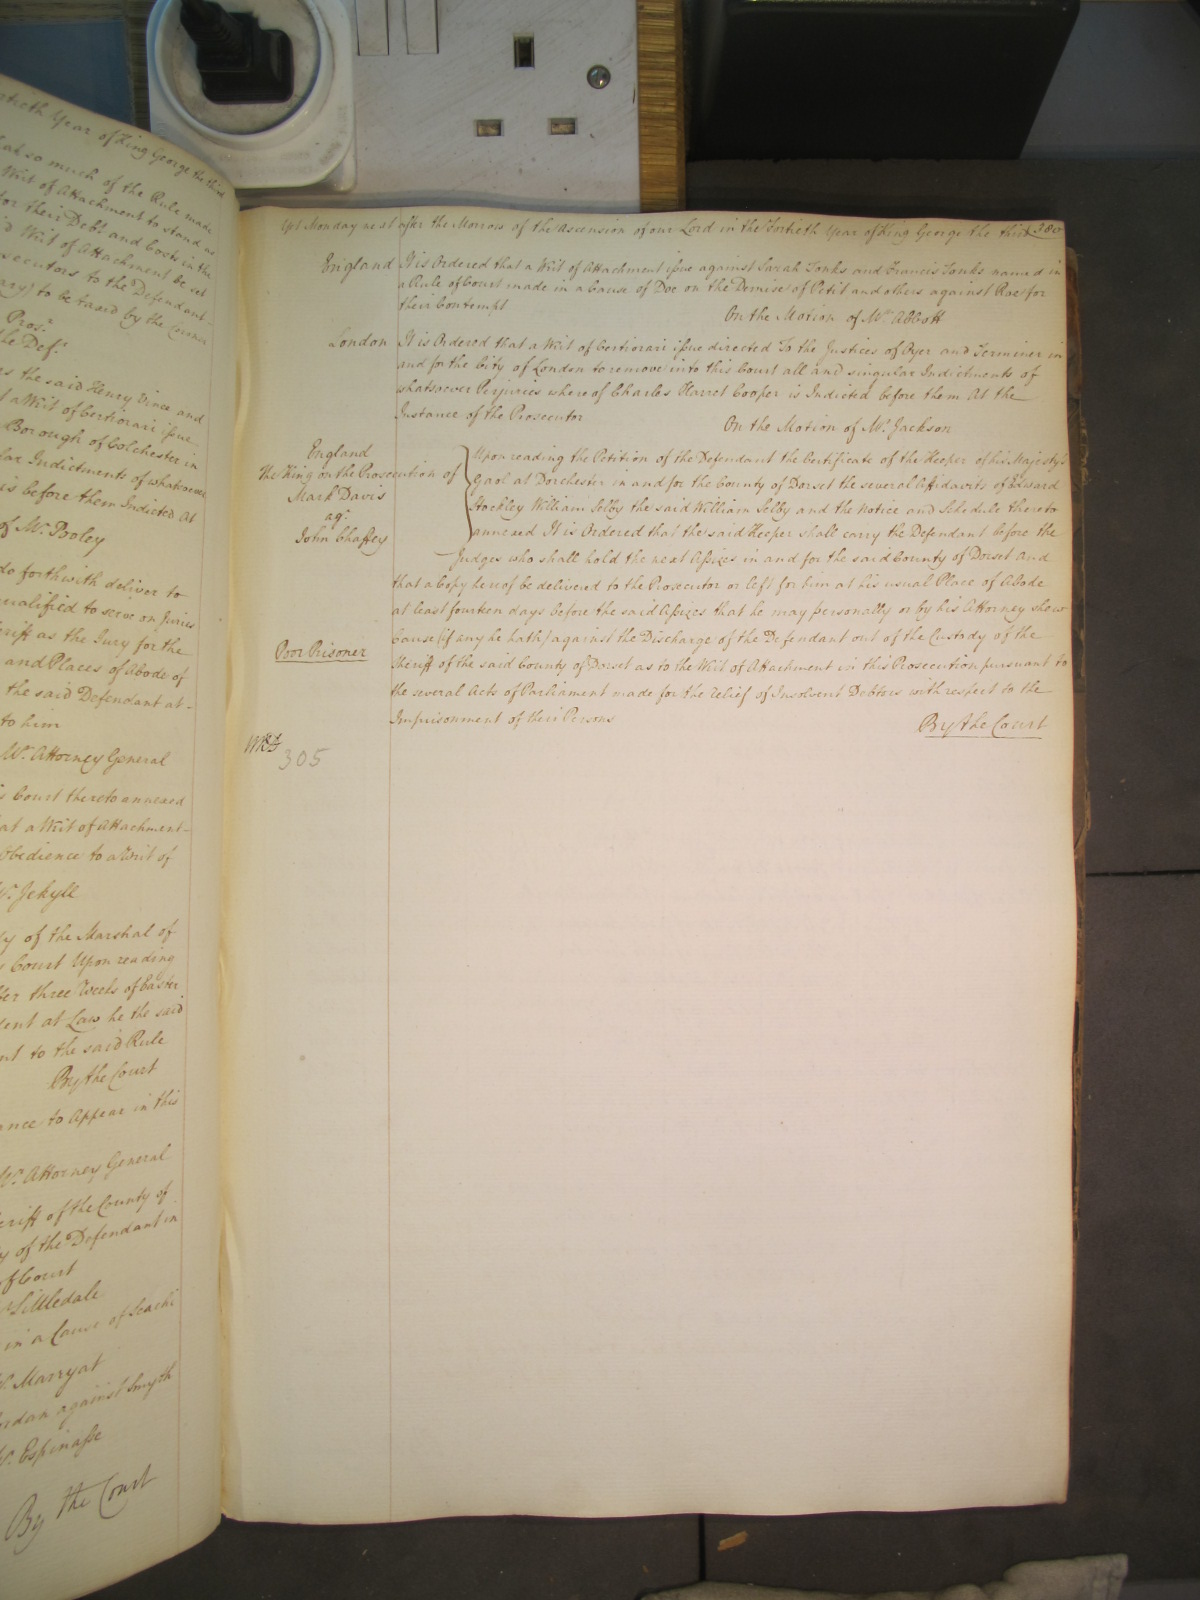 rtieth Year of King George the third
so much of the Rule made
Writ of Attachment to stand
for their Debt and Costs in the
Writ of Attachment be set
secutors to the Defendant
to be taxed by the
Pros.r
the Def.t
the said Henry Vince and
a Writ of Certiorari issue
Borough of Colchester in
lar Indictments of whatsoever
is before them Indicted At
of Mr. Pooley
do forthwith deliver to
qualified to serve on Juries
eriff as the Jury for the
and Places of Abode of
the said Defendant at
to him
Mr. Attorney General
Court thereto annexed
at a Writ of Attachment
obedience to a Writ of
Mr. Jekyll
y of the Marshal of
Court Upon reading
ter three Weeks of Easter
dent at Law he the said
nt to the said Rule
By the Court
ance to Appear in this
Mr. Attorney General
eriff of the County of
y of the Defendant in
of Court
Mr. Littledale
in a Cause of
Mr. Marryat
ordan against Smyth
Mr. Espinasse
By the Court
Monday next after the Morrow of the Ascension of our Lord in the Fortieth Year of King George the third
England It is Ordered that a Writ of Attachment issue against Sarah Tonks and Francis Tonks named in
a Rule of Court made in a Cause of Doe on the Demise of Petit and others against Roe for
their Contempt On the Motion of Mr. Abbott
London It is Ordered that a Writ of Certiorari issue directed To the Justices of Oyer and Terminer in
and for the City of London to remove into this Court all and singular Indictments of
whatsoever Perjuries whereof Charles Harriet Cooper is Indicted before them At the
Instance of the Prosecutor
On the Motion of Mr. Jackson
England
The King on the Prosecution of
Mark Davis
ag.t
John Chaffey
Upon reading the Petition of the Defendant the Certificate of the Keeper of his Majesty's
Gaol at Dorchester in and for the County of Dorset the several Affidavits of Edward
Stockley William Selby the said William Selby and the Notice and Schedule thereto
annexed It is Ordered that the said Keeper shall carry the Defendant before the
Judges who shall hold the next Assizes in and for the said County of Dorset And
that a Copy hereof be delivered to the Prosecutor or left for him at his usual Place of Abode
at least fourteen days before the said Assizes that he may personally or by his Attorney shew
Poor Prisoner
Cause (if any he hath) against the Discharge of the Defendant out of the Custody of the
Sheriff of the said County of Dorset as to the Writ of Attachment in this Prosecution pursuant to
the several Acts of Parliament made for the relief of Insolvent Debtors with respect to the
Imprisonment of their Persons By the Court
305